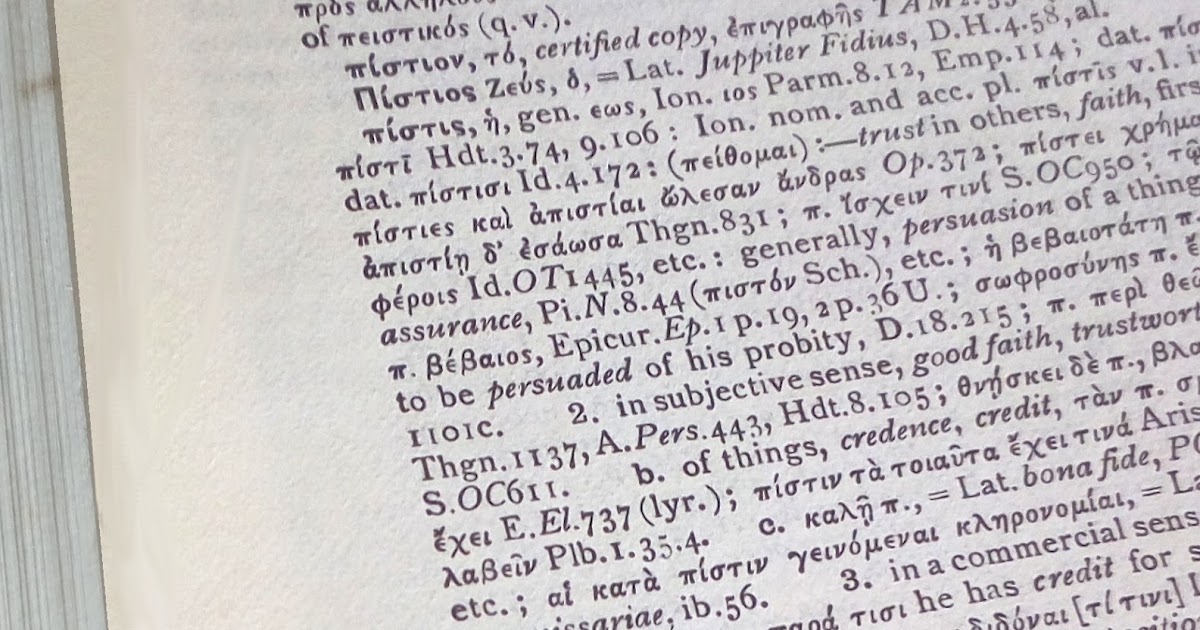 πρὸς ἀλλήλο
of πειστικός (q. v.).
πίστιον, τό, certified copy, ἐπιγραφῆς
Πίστιος Ζεύς, ὁ, = Lat. Juppiter Fidius, D.H.4.58, al.
πίστις, ἡ, gen. εως, Ion. ιος Parm.8.12, Emp.114; dat. πίσ
πίστῑ Hdt.3.74, 9.106: Ion. nom. and acc. pl. πίστῑς v.l. i
dat. πίστισι Id.4.172: (πείθομαι):—trust in others, faith, firs
πίστιες καὶ ἀπιστίαι ὤλεσαν ἄνδρας Op.372; πίστει χρήμα
ἀπιστίῃ δ' ἐσάωσα Thgn.831; π. ἴσχειν τινί S.OC950; τῶ
φέροις Id.OT1445, etc.: generally, persuasion of a thing
assurance, Pi.N.8.44 (πιστόν Sch.), etc.; ἡ βεβαιοτάτη π
π. βέβαιος, Epicur.Ep.1 p.19, 2 p.36 U.; σωφροσύνης π. ἔ
to be persuaded of his probity, D.18.215; π. περὶ θε
1101c. 2. in subjective sense, good faith, trustwort
Thgn.1137, A.Pers.443, Hdt.8.105; θνήσκει δὲ π., βλα
S.OC611. b. of things, credence, credit, τὰν π. σ
ἔχει E.El.737 (lyr.); πίστιν τὰ τοιαῦτα ἔχει τινά Aris
λαβεῖν Plb.1.35.4. c. καλῇ π., = Lat. bona fide, P
etc.; αἱ κατὰ πίστιν γεινόμεναι κληρονομίαι, = La
issariae, ib.56. 3. in a commercial sens
παρά τισι he has credit for s
διδόναι [τί τινι]